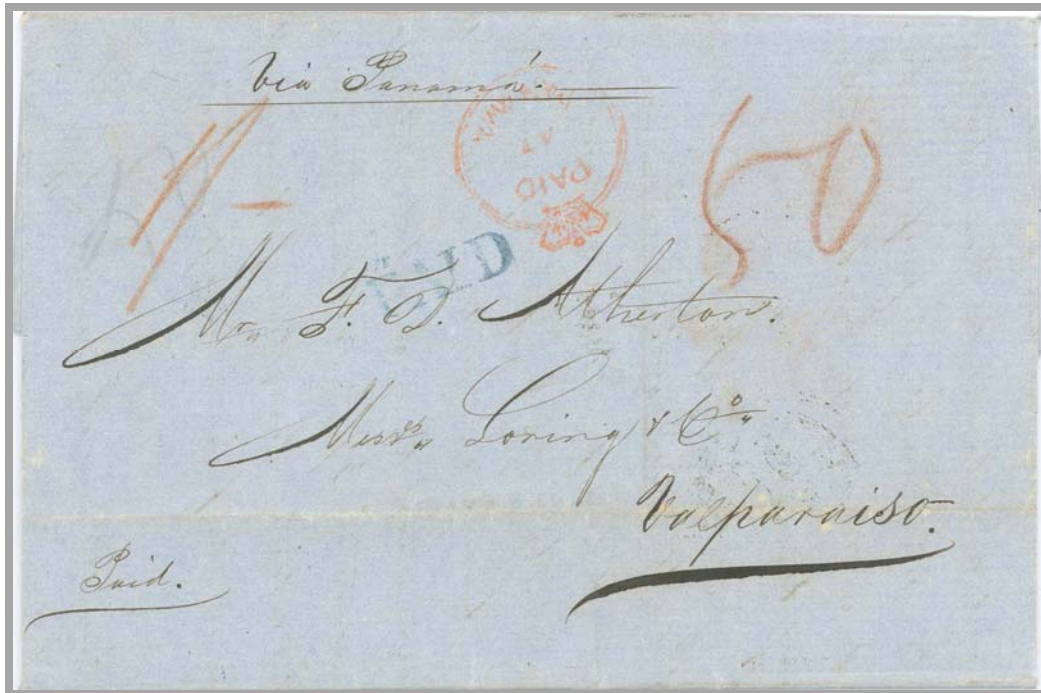 Via Panamá.
1/-
50
PAID
PAID
Mr,, F. D. Atherton.
Messrs,, Loring & Co,,
Valparaiso.
Paid.